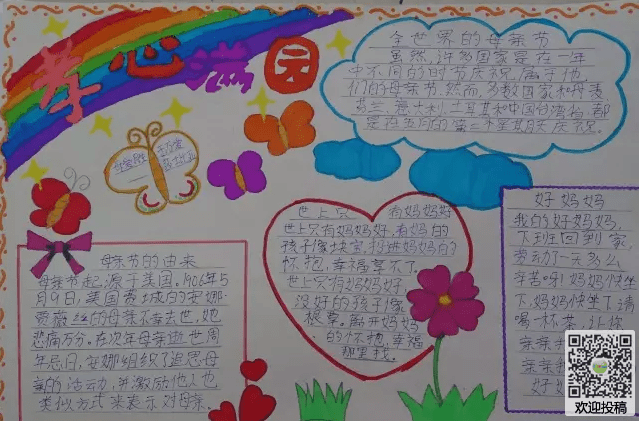 孝心满园
全世界的母亲节
虽然,许多国家是在一年
中不同的时节庆祝属于他
们的母亲节,然而,多数国家和丹麦
芬兰、意大利、土耳其和中国台湾省 都
是在五月的第二个星期庆
母亲节的由来
母亲节起源于美国。1906年5
月9日,美国费城的安娜·
爱薇丝的母亲不幸去世,她
悲痛万分。在次年母亲逝世周
年忌日,安娜组织了追思母
亲的活动,并激励他人也
类似方式来表示对母亲
世上只 有妈妈好
世上只有妈妈好,有妈的
孩子像块宝,投进妈妈的
怀抱,幸福享不了。
世上只有妈妈好,
没妈的孩子像
根草。离开妈妈
的怀抱,幸福
那里找。
好妈妈
我的好妈妈,
下班回到家
劳动了一天多么
辛苦呀!妈妈快坐
下,妈妈快坐下,请
喝一杯茶,让我
亲亲
亲亲
好
欢迎投稿